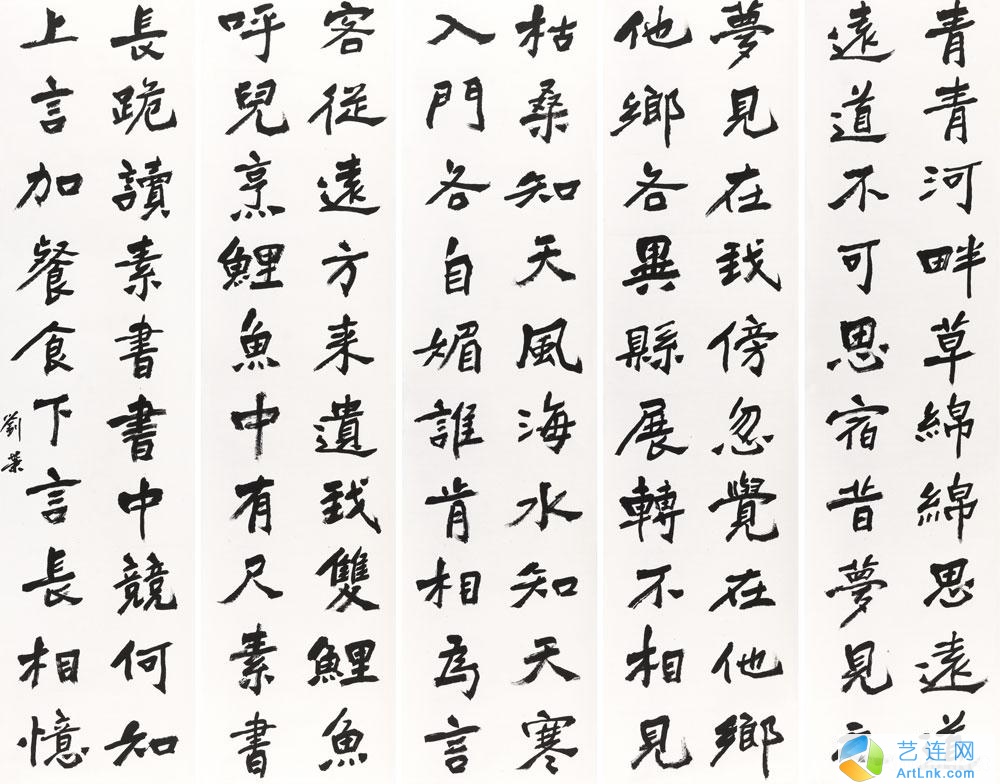 青青河畔草綿綿思遠
遠道不可思宿昔夢見
夢見在我傍忽覺在他鄉
他鄉各異縣展轉不相見
枯桑知天風海水知天寒
入門各自媚誰肯相為言
客從遠方来遺我雙鯉魚
呼兒烹鯉魚中有尺素書
長跪讀素書書中競何知
上言加餐食下言長相憶
劉
艺连网
ArtLnk.com